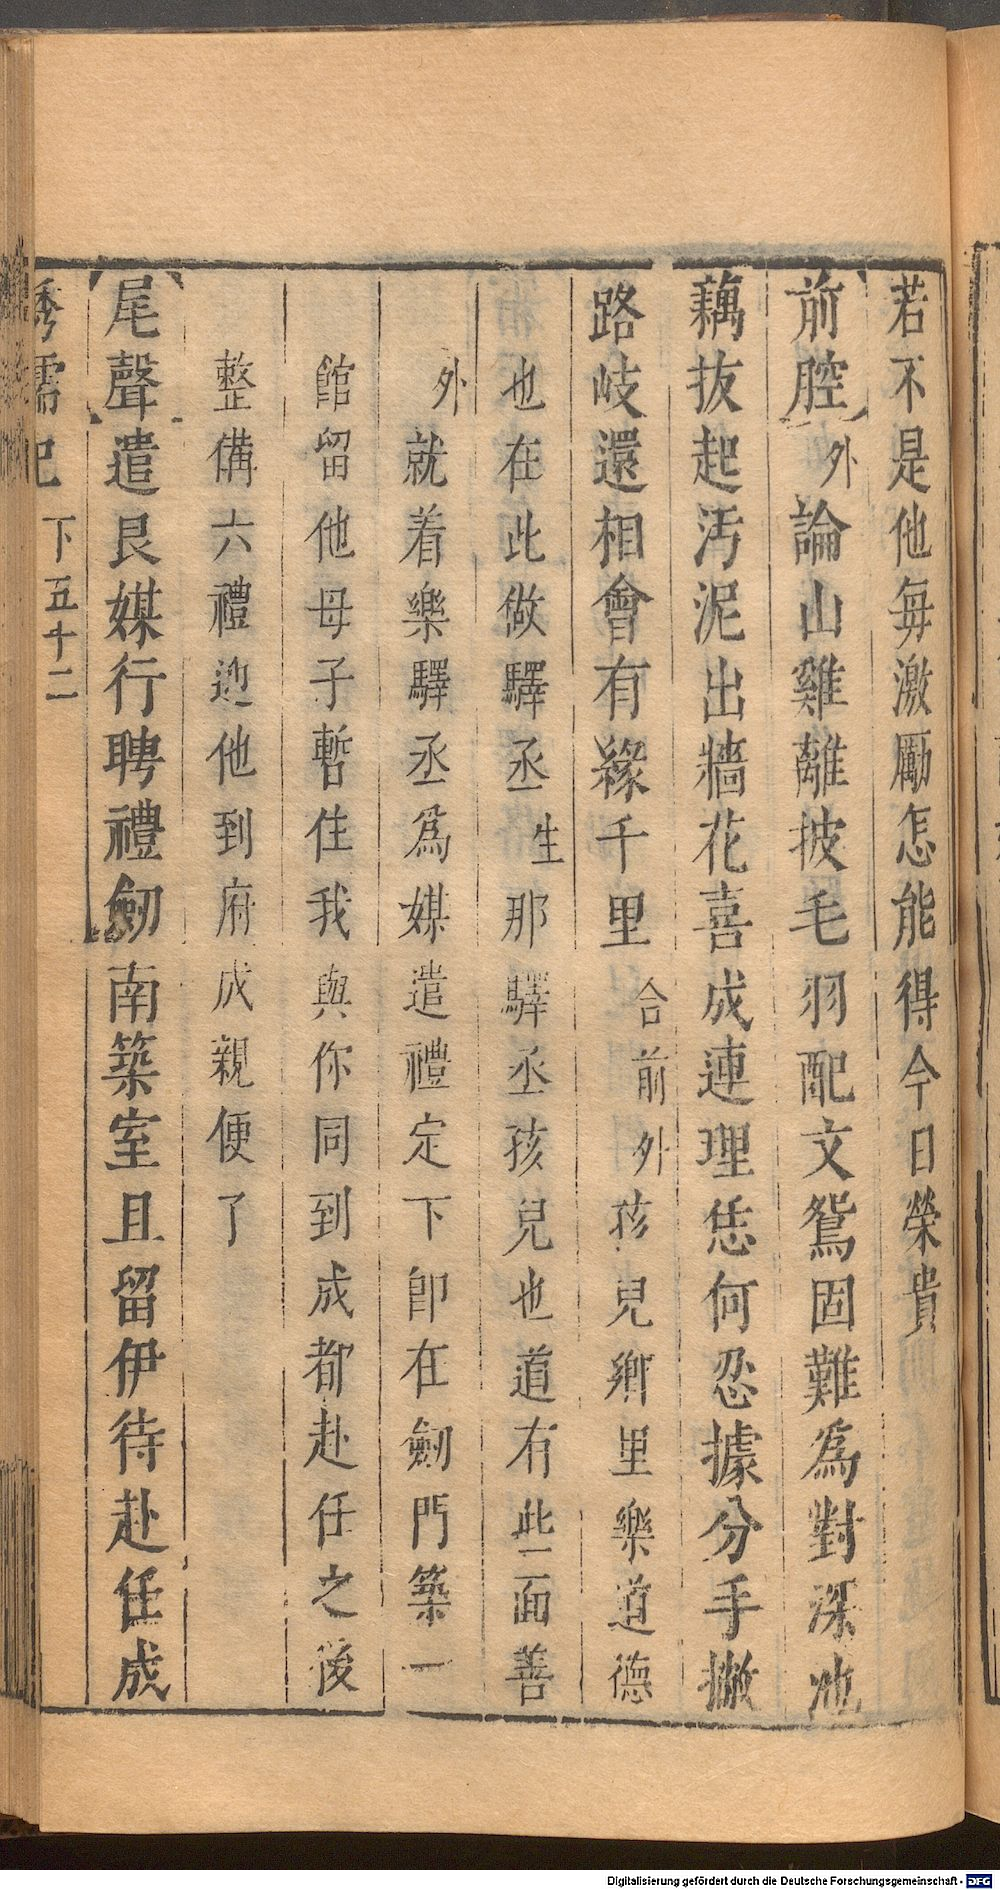 若不是他每激厲怎能得今日榮貴
【前腔】外論山雞離披毛羽配文鴛固難為對深池
藕拔起汚泥出牆花喜成連理恁何忍據分手撇
路岐還相會有緣千里合前外孩兒鄉里樂道德
也在此做驛丞生那驛丞孩兒也道有些面善
外就着樂驛丞為媒遣禮定下卽在劒門築一
館留他母子暫住我與你同到成都赴任之後
整備六禮迎他到府成親便了
【尾聲】遣良媒行聘禮劒南築室且留伊待赴任成
繡襦記 下五十二
Digitalisierung gefördert durch die Deutsche Forschungsgemeinschaft - DFG